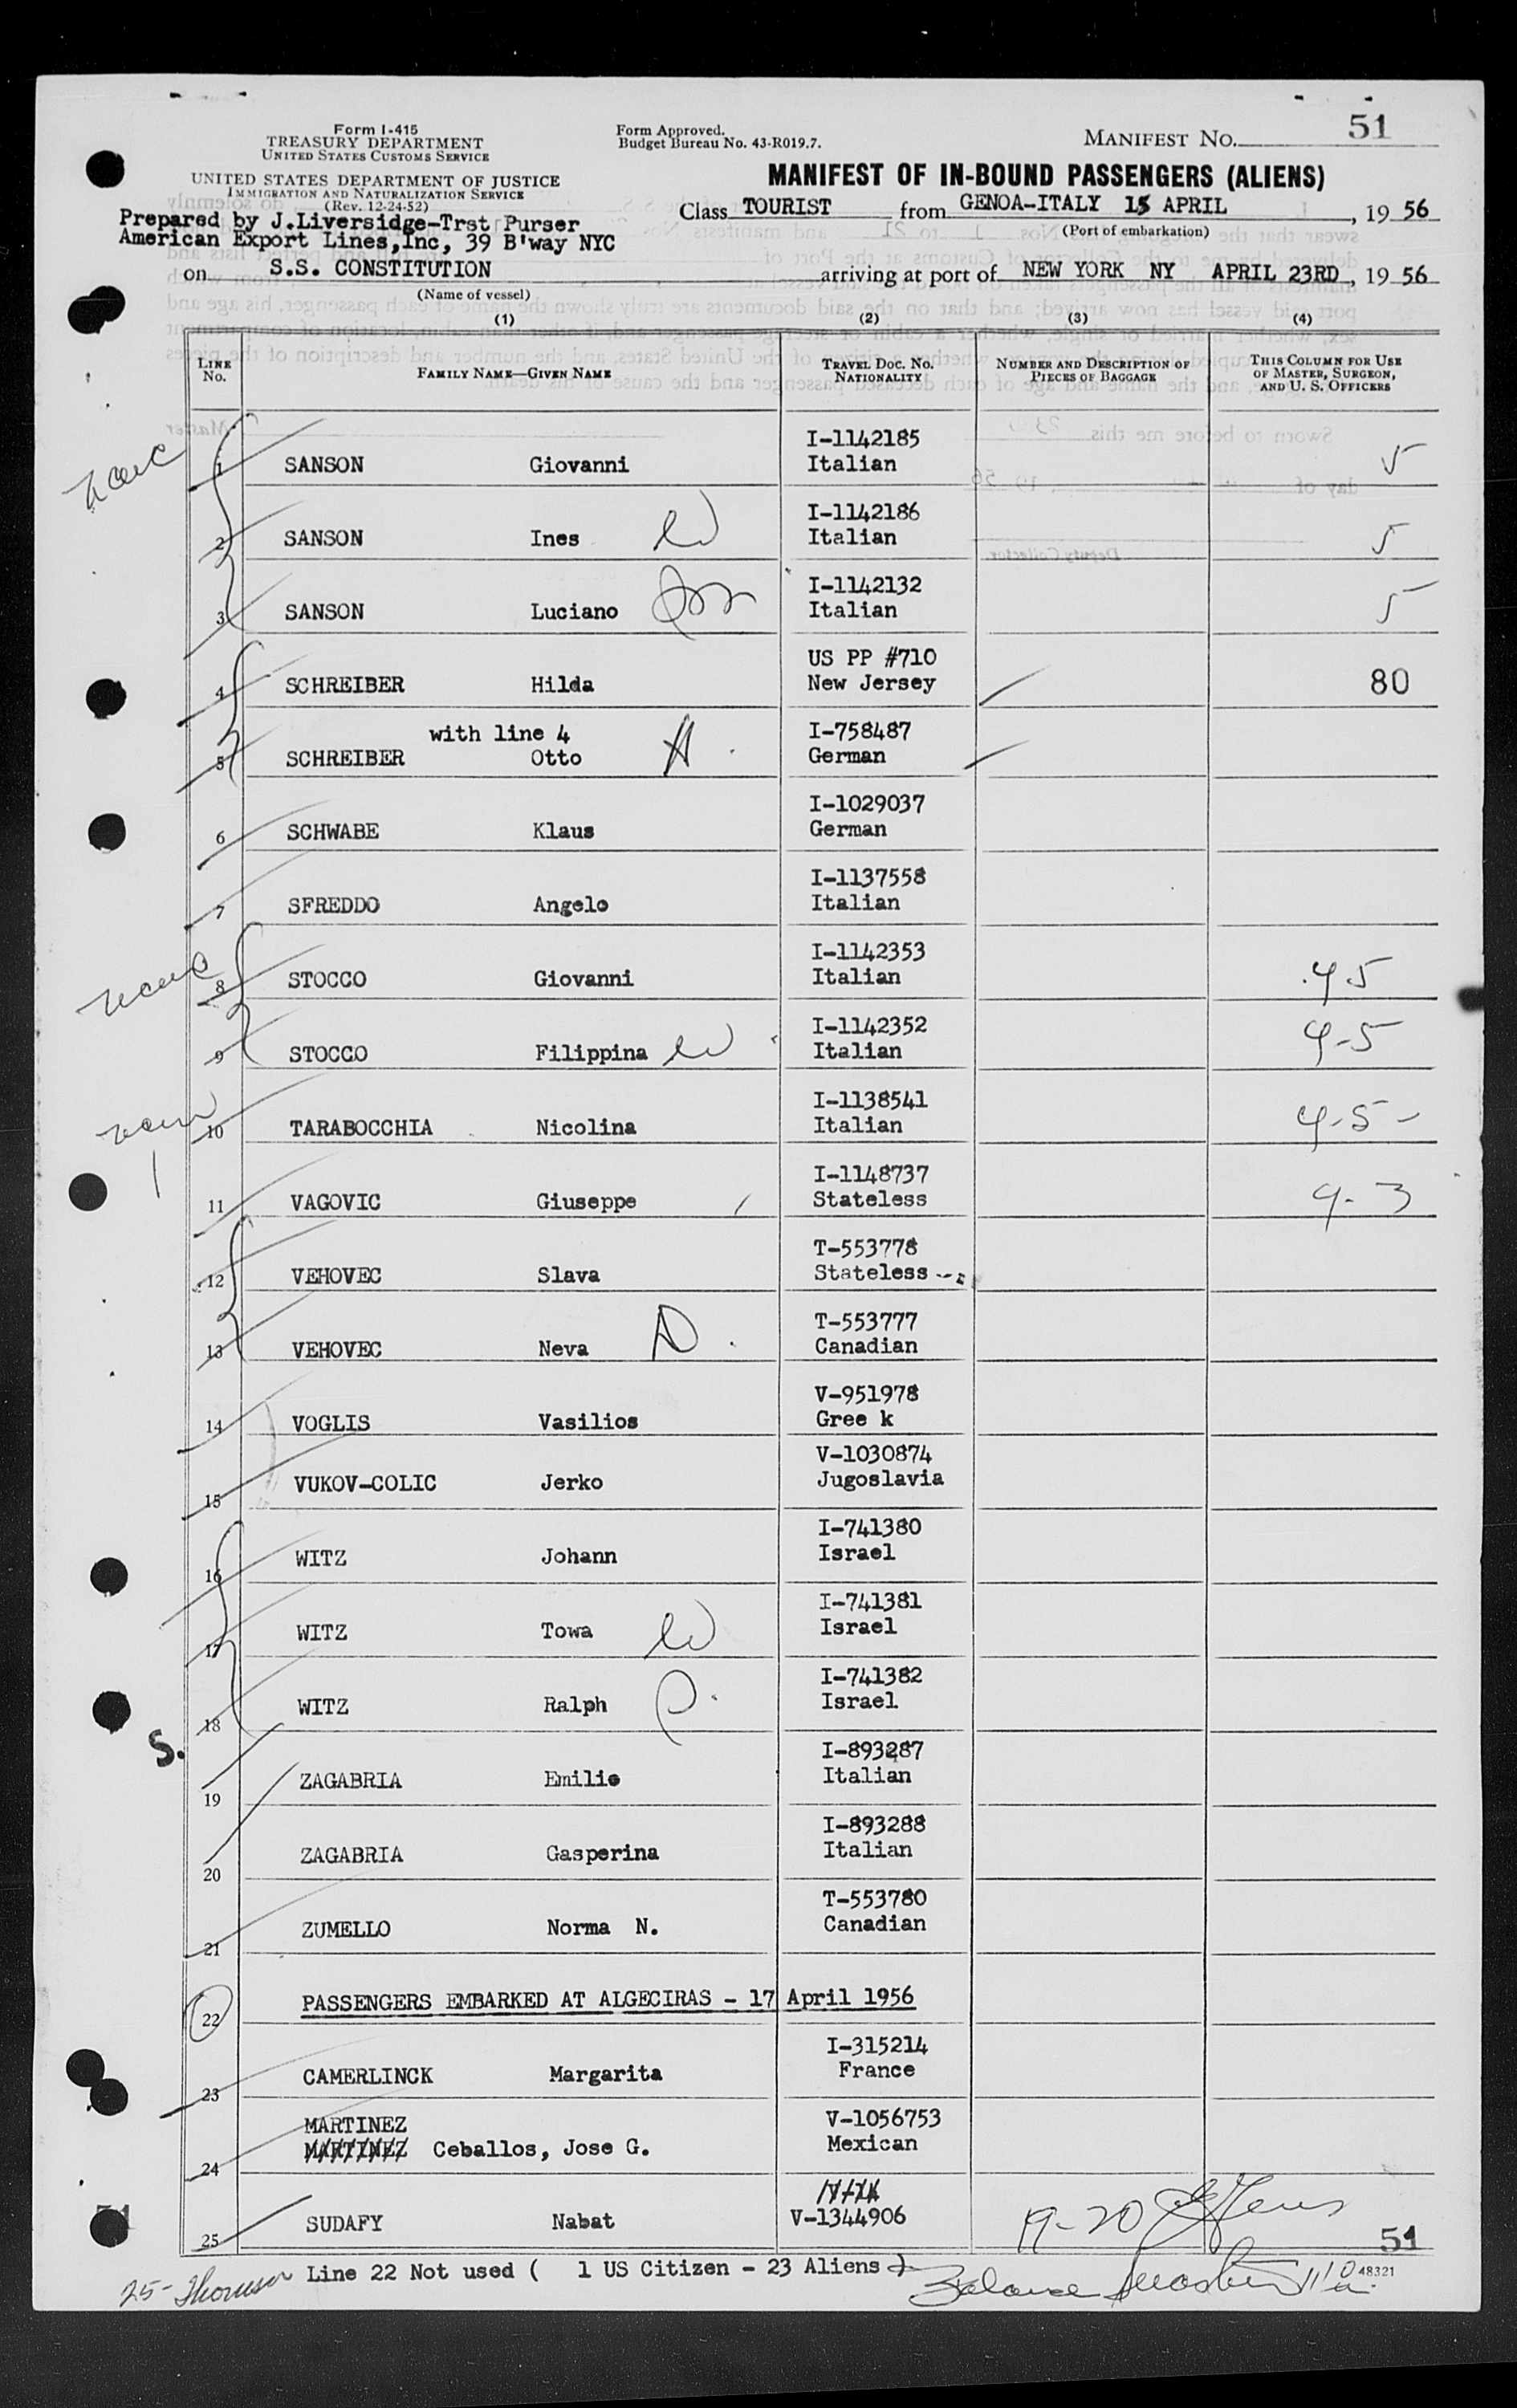 51
Form I-415
TREASURY DEPARTMENT
UNITED STATES CUSTOMS SERVICE
Form Approved.
Budget Bureau No. 43-R019.7.
MANIFEST NO.
UNITED STATES DEPARTMENT OF JUSTICE
IMMIGRATION AND NATURALIZATION SERVICE
(Rev. 12-24-52)
MANIFEST OF IN-BOUND PASSENGERS (ALIENS)
Prepared by J.Liversidge-Trst Purser
American Export Lines,Inc, 39 B'way NYC
Class TOURIST from GENOA-ITALY 15 APRIL, 19 56
(Port of embarkation)
on S.S. CONSTITUTION arriving at port of NEW YORK NY APRIL 23RD, 19 56
(Name of vessel)
(1) (2) (3) (4)
LINE No. FAMILY NAME—GIVEN NAME TRAVEL DOC. NO. NATIONALITY NUMBER AND DESCRIPTION OF PIECES OF BAGGAGE THIS COLUMN FOR USE OF MASTER, SURGEON, AND U. S. OFFICERS
I-1142185
1 SANSON Giovanni Italian 5
I-1142186
2 SANSON Ines W Italian 5
I-1142132
3 SANSON Luciano Son Italian 5
US PP #710
4 SCHREIBER Hilda New Jersey 80
with line 4 I-758487
5 SCHREIBER Otto H German
I-1029037
6 SCHWABE Klaus German
I-1137558
7 SFREDDO Angelo Italian
I-1142353
8 STOCCO Giovanni Italian 4-5
I-1142352
9 STOCCO Filippina W Italian 4-5
I-1138541
10 TARABOCCHIA Nicolina Italian 4-5-
I-1148737
11 VAGOVIC Giuseppe Stateless 4-3
T-553778
12 VEHOVEC Slava Stateless
T-553777
13 VEHOVEC Neva D Canadian
V-951978
14 VOGLIS Vasilios Gree k
V-1030874
15 VUKOV-COLIC Jerko Jugoslavia
I-741380
16 WITZ Johann Israel
I-741381
17 WITZ Towa W Israel
I-741382
18 WITZ Ralph Israel
S.
I-893287
19 ZAGABRIA Emilio Italian
I-893288
20 ZAGABRIA Gasperina Italian
T-553780
21 ZUMELLO Norma N. Canadian
22 PASSENGERS EMBARKED AT ALGECIRAS - 17 April 1956
I-315214
23 CAMERLINCK Margarita France
MARTINEZ V-1056753
24 MARTINEZ Ceballos, Jose G. Mexican
25 SUDAFY Nabat V-1344906
19-20
51
Line 22 Not used ( 1 US Citizen - 23 Aliens )
48321
25-